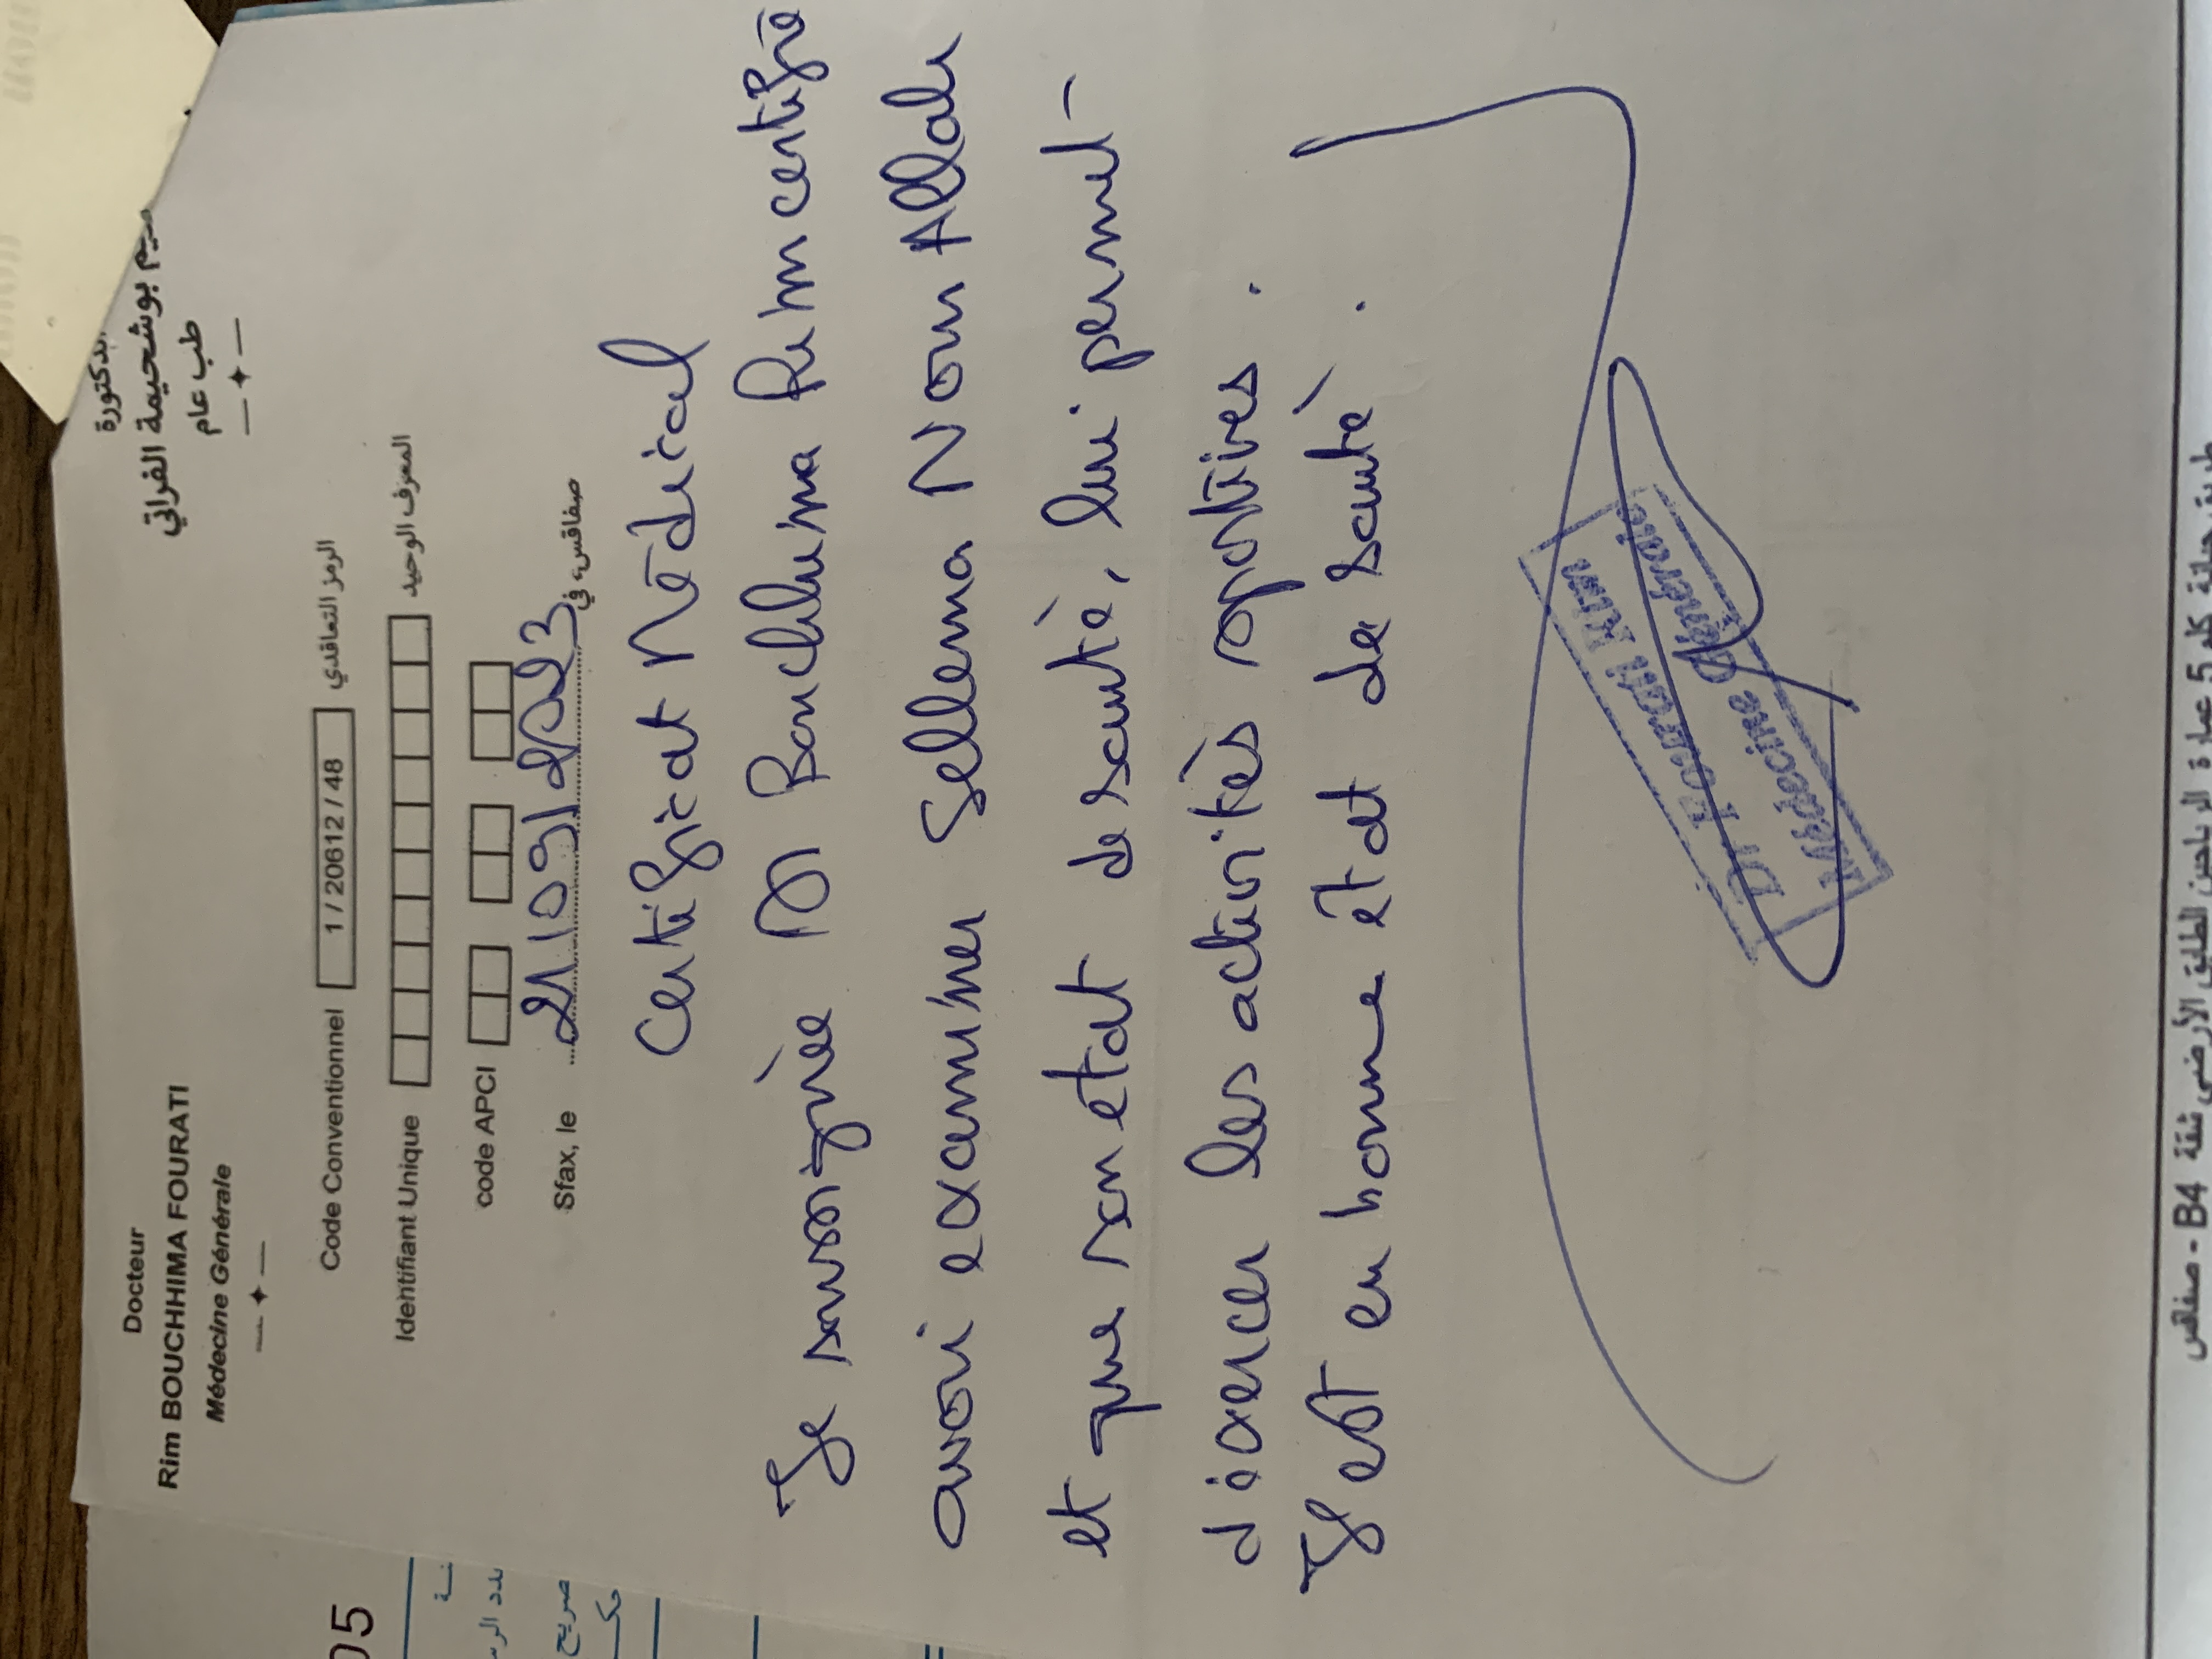 Docteur
Rim BOUCHHIMA FOURATI
Médecine Générale
الدكتورة
ريم بوشحيمة الفراتي
طب عام
Code Conventionnel 1 / 20612 / 48 الرمز التعاقدي
Identifiant Unique المعرف الوحيد
code APCI
Sfax, le 21/09/2023 صفاقس في
Certificat Médical
Je soussignée Dr Bouchhima Rim certifie
avoir examiner Sellema Nour Allah
et que son etat de santé, lui permet-
d'exercer les activités sportives.
Il est en bonne état de santé.
Dr Fourati Rim
Médecine Générale
05
طريق حانة كلم 5 عمارة الرياحين الطابق الأرضي شقة B4 - صفاقس